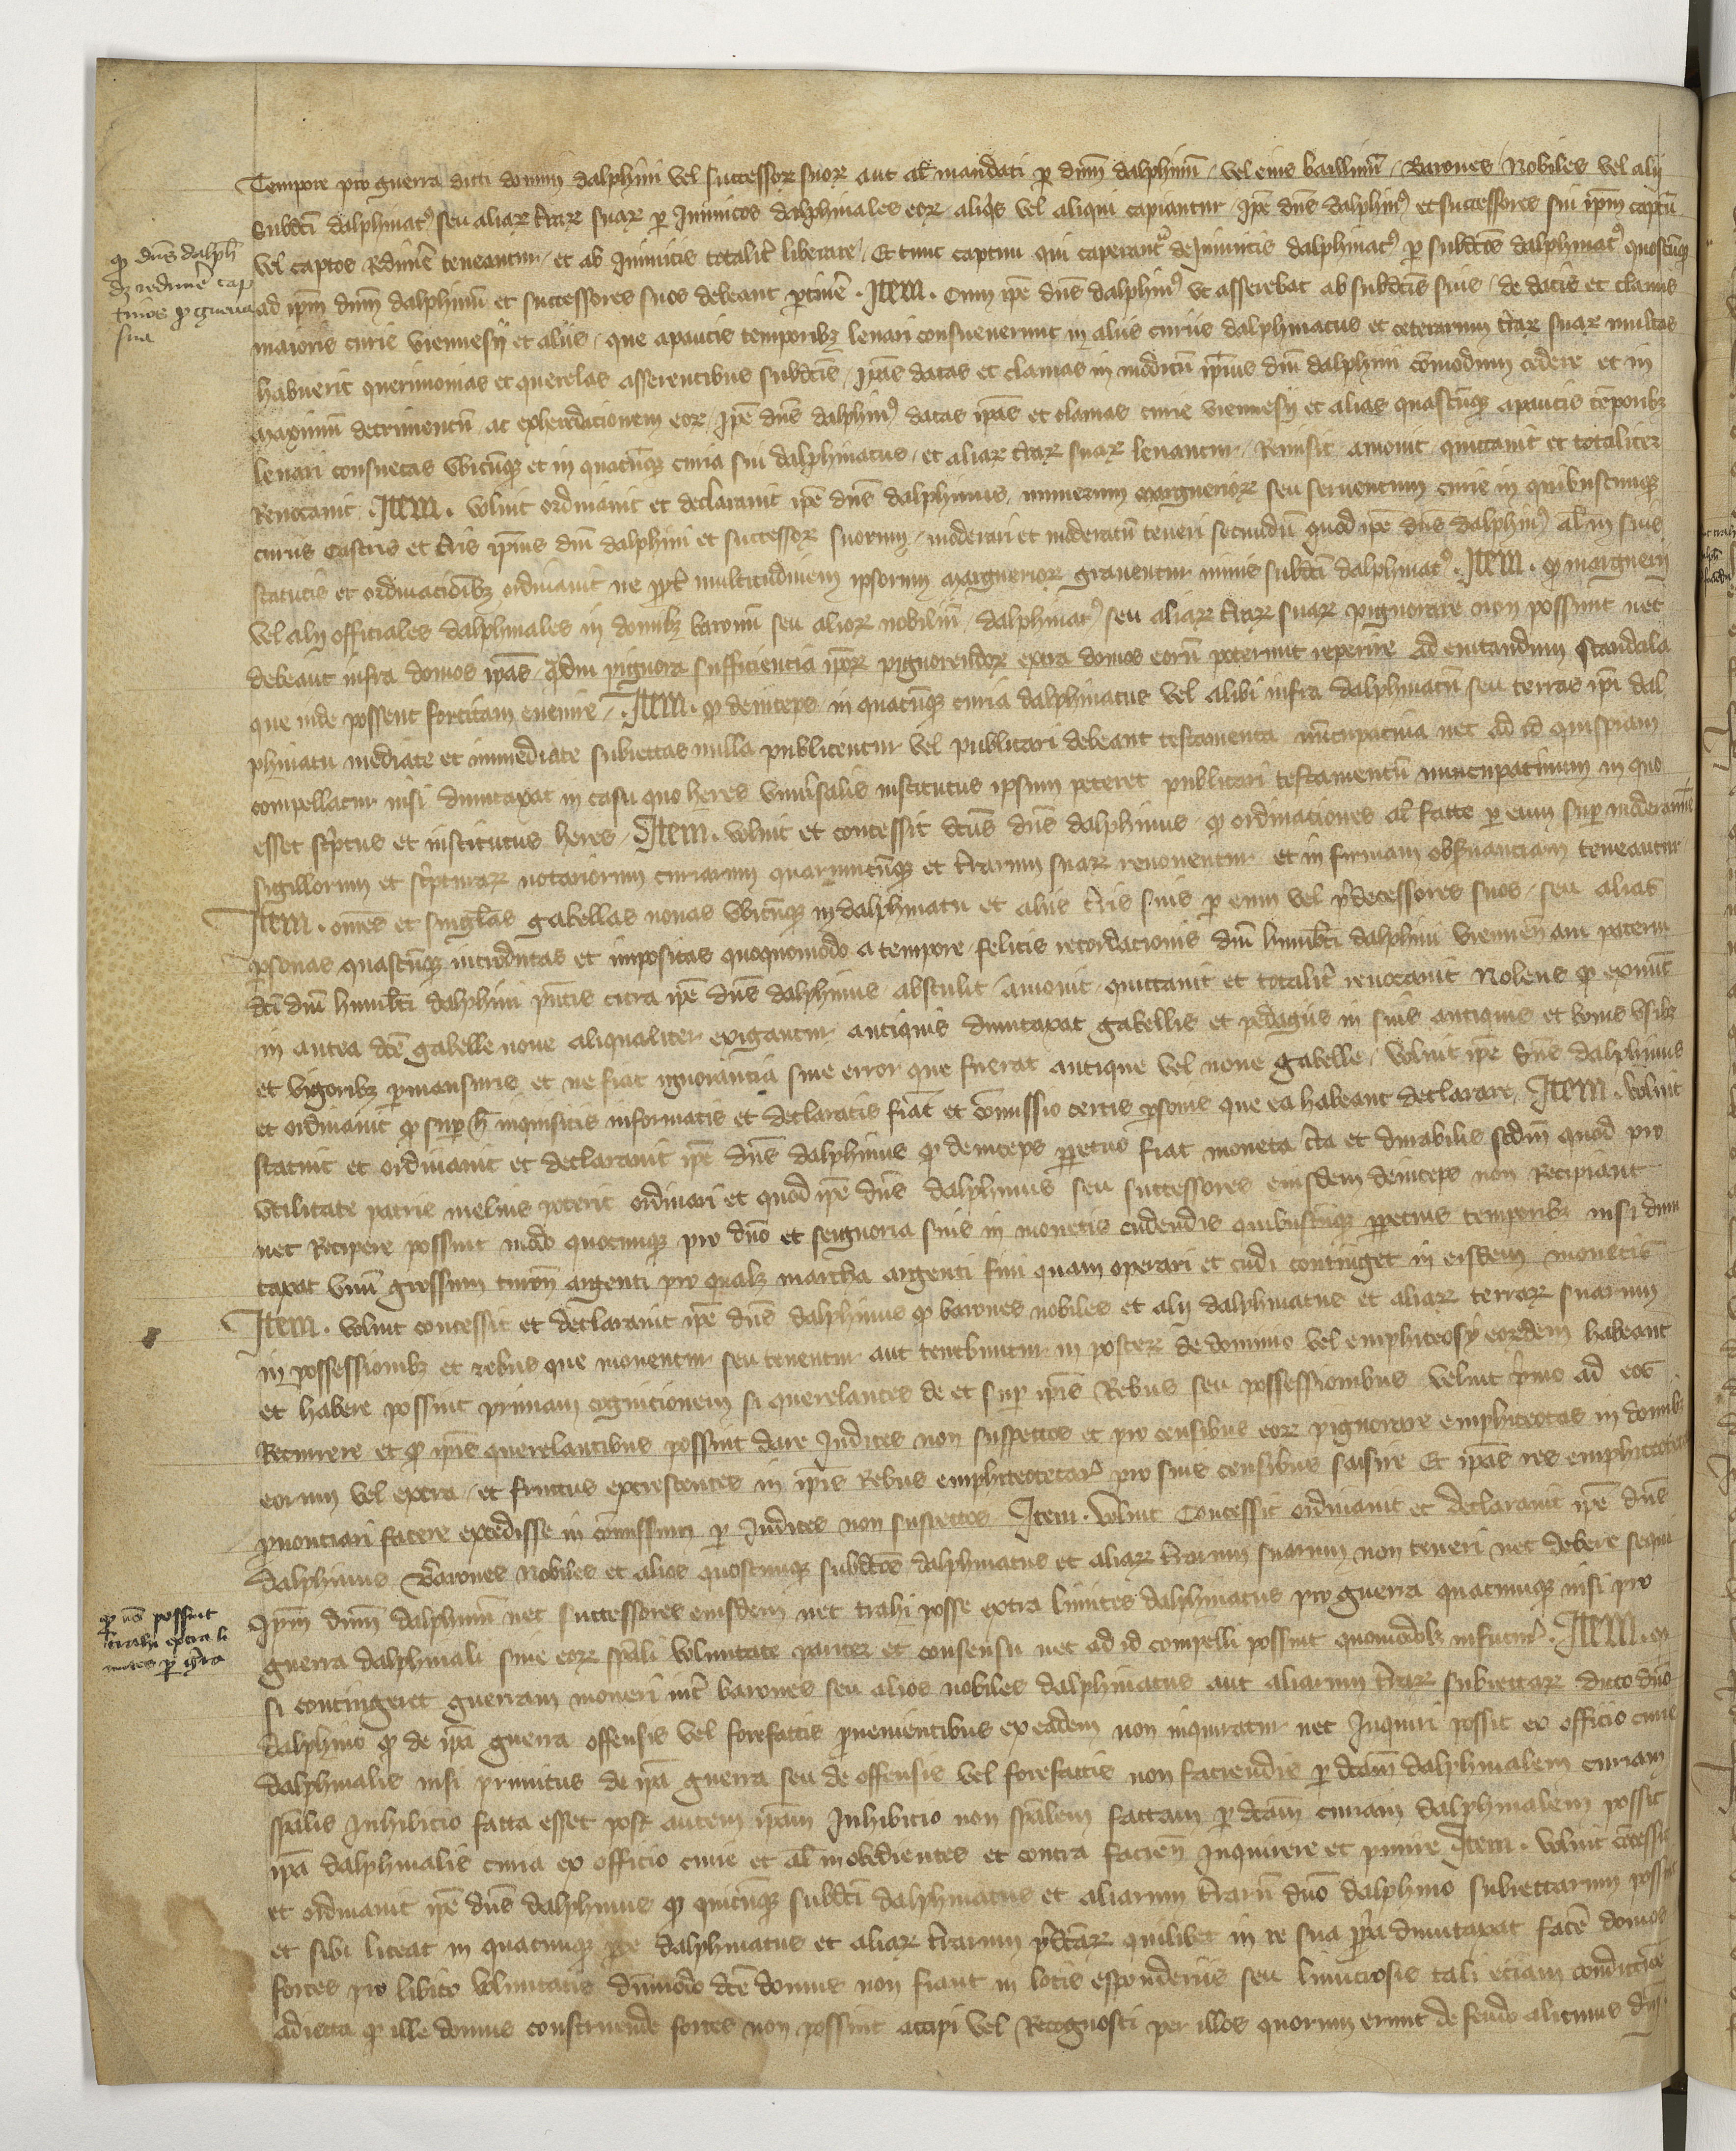 Tempore pro guerra dicti domini dalphini vel successor suor aut al mandati p dnm dalphinu / vel eius baillivu / Barones / Nobiles vel alij
Subdti dalphinat seu aliar trar suar p Inimicos dalphinales eor aliqs vel aliqui capiantur / Ipe dns dalphin et successores sui ipm captu
vel captos Redime teneantur / et ab Inimicis totalit liberare / Et tunc captivi qui caperent de Inimicis dalphinat p subdtos dalphinat quoscuq
q dns dalph
dz redime cap
tivos p guerra
sua
ad ipm dnm dalphinu et successores suos debeant ptine . Item . Cum ipe dns dalphin ut asserebat ab subdtis suis / de datis et clamis
maioris curie viennesij et aliis / que apaucis temporibz levari consueverunt in aliis curiis dalphinatus et ceterarum trar suar multas
habuerit querimonias et querelas asserentibus subdtis / Ipas datas et clamas in modicu ipius dni dalphini comodum cedere et in
maximu detrimentu ac exheredacionem eor / Ipe dns dalphin datas ipas et clamas curie viennesij et alias quascuq apaucis temporibz
levari consuetas Vbicuq et in quacuq curia sui dalphinatus / et aliar trar suar levantur / Remisit amovit quittavit et totaliter
Revocavit . Item . voluit ordinavit et declaravit ipe dns dalphinus / numerum marguerior seu serventium curie in quibuscumq
curiis Castris et tris ipius dni dalphini et successor suorum / moderari et moderatu teneri secundu quod ipe dns dalphin al in suis
statutis et ordinacioibz ordinavit ne ppt multitudinem ipsorum marguerior graventur nimis subdti dalphinat . Item . q marguerij
vel alij officiales dalphinales in domibz baronu seu alior nobiliu / dalphinat seu aliar trar suar pignorare non possint nec
debeant infra domos ipas / qdiu pignora sufficiencia ipor pignorendor extra domos eoru poterunt reperire Ad evitandum scandala
que inde possent forcitam evenire / . Item . q deinceps in quacuq curia dalphinatus vel alibi infra dalphinatu seu terras ipi dal
phinatu mediate et immediate subiectas nulla publicentur vel publicari debeant testamenta nucupativa nec ad id quispiam
compellatur nisi dumtaxat in casu quo heres universalis institutus ipsum peteret publicari testamentu nuncupativum in quo
esset scptus et institutus heres / Item . voluit et concessit dtus dns dalphinus / q ordinationes al facte p eum sup moderamie
sigillorum et scpturar notariorum curiarum quarumcuq et trarum suar renoventur et in firmam obsvanciam teneantur
Item . omes et singlas gabellas novas Vbicuq in dalphinatu et aliis tris suis p eum vel pdecessores suos / seu alias
psonas quascuq introductas et impositas quoquomodo a tempore felicis recordacionis dni humbti dalphini viennen avi paterni
dti dni humbti dalphini pntis citra ipe dns dalphinus abstulit amovit quittavit et totalit revocavit Nolens q exnuc
in antea dte gabelle nove aliqualiter exigantur antiquis dumtaxat gabellis et pedagiis in suis antiquis et bonis vsibz
et vigoribz pmansuris et ne fiat ignorantia sive error que fuerat antique vel nove gabelle / Voluit ipe dns dalphinus
et ordinavit q sup h inquisitis informatis et declaratis fiat et comissio certis psonis que ea habeant declarare / Item . voluit
statuit et ordinavit et declaravit ipe dns dalphinus q deinceps ppetuo fiat moneta cta et durabilis scdm quod pro
vtilitate patrie melius poterit ordinari et quod ipe dns dalphinus seu successores eiusdem deinceps non Recipiant
nec Recipere possint modo quocumq pro dno et seignoria suis in monetis cudendis quibuscuq ppetuis temporibz nisi dum
taxat vnu grossum turon argenti pro qualz marcha argenti fini quam operari et cudi continget in eisdem monetis
Item . voluit concessit et declaravit ipe dns dalphinus q barones nobiles et alij dalphinatus et aliar terrar suarum
in possessionibz et rebus que moventur seu tenentur aut tenebuntur in poster de dominio vel emphiteosy eordem habeant
et habere possint primam cognicionem si querelantes de et sup ipis Rebus seu possessionibus velint pmo ad eos
Recurrere et q ipis querelantibus possint dare Iudices non suspectos et pro censibus eor pignorare emphiteotas in domibz
eorum vel extra / et fructus excrescentes in ipis Rebus emphiteotecar pro suis censibus saisire Et ipas res
pnontiari facere excedisse in comissum p Iudices non suspectos Item . Voluit Concessit ordinavit et declaravit ipe dns
dalphinus Barones Nobiles et alios quoscumq subdtos dalphinatus et aliar trarum suarum non teneri nec debere sequi
Ipm dnm dalphinu nec successores eiusdem nec trahi posse extra limites dalphinatus pro guerra quacumq nisi pro
q no possint
trahi extra li
mites p gra
guerra dalphinali sine eor spali voluntate pariter et consensu nec ad id compelli possint quomodolz infutur . Item .
si contingeret guerram moveri int barones seu alios nobiles dalphinatus aut aliarum trar subiectar dicto dno
dalphino q de ipa guerra offensis vel forefactis pvenientibus ex eadem non inquiratur nec Inquiri possit ex officio curie
dalphinalis nisi primitus de ipa guerra seu de offensis vel forefactis non faciendis p dtam dalphinalem curiam
spalis Inhibicio facta esset post autem ipam Inhibicio non spalem factam p dtam curiam dalphinalem possit
ipa dalphinalis curia ex officio curie et al inobedientes et contra facien Inquirere et punire Item . voluit cocessit
et ordinavit ipe dns dalphinus q quicuq subdti dalphinatus et aliarum traru dno dalphino subiectarum possit
et sibi liceat in quacumq pte dalphinatus et aliar trarum pdtar quilibet in re sua ppa dumtaxat face domos
fortes pro libito voluntatis dumodo dte domus non fiant in locis esponderiis seu limitrosis tali etiam condicioe
adiecta q ille domus construende fortes non possint accipi vel Recognosci per illos quorum erunt de feudo alicuius dni